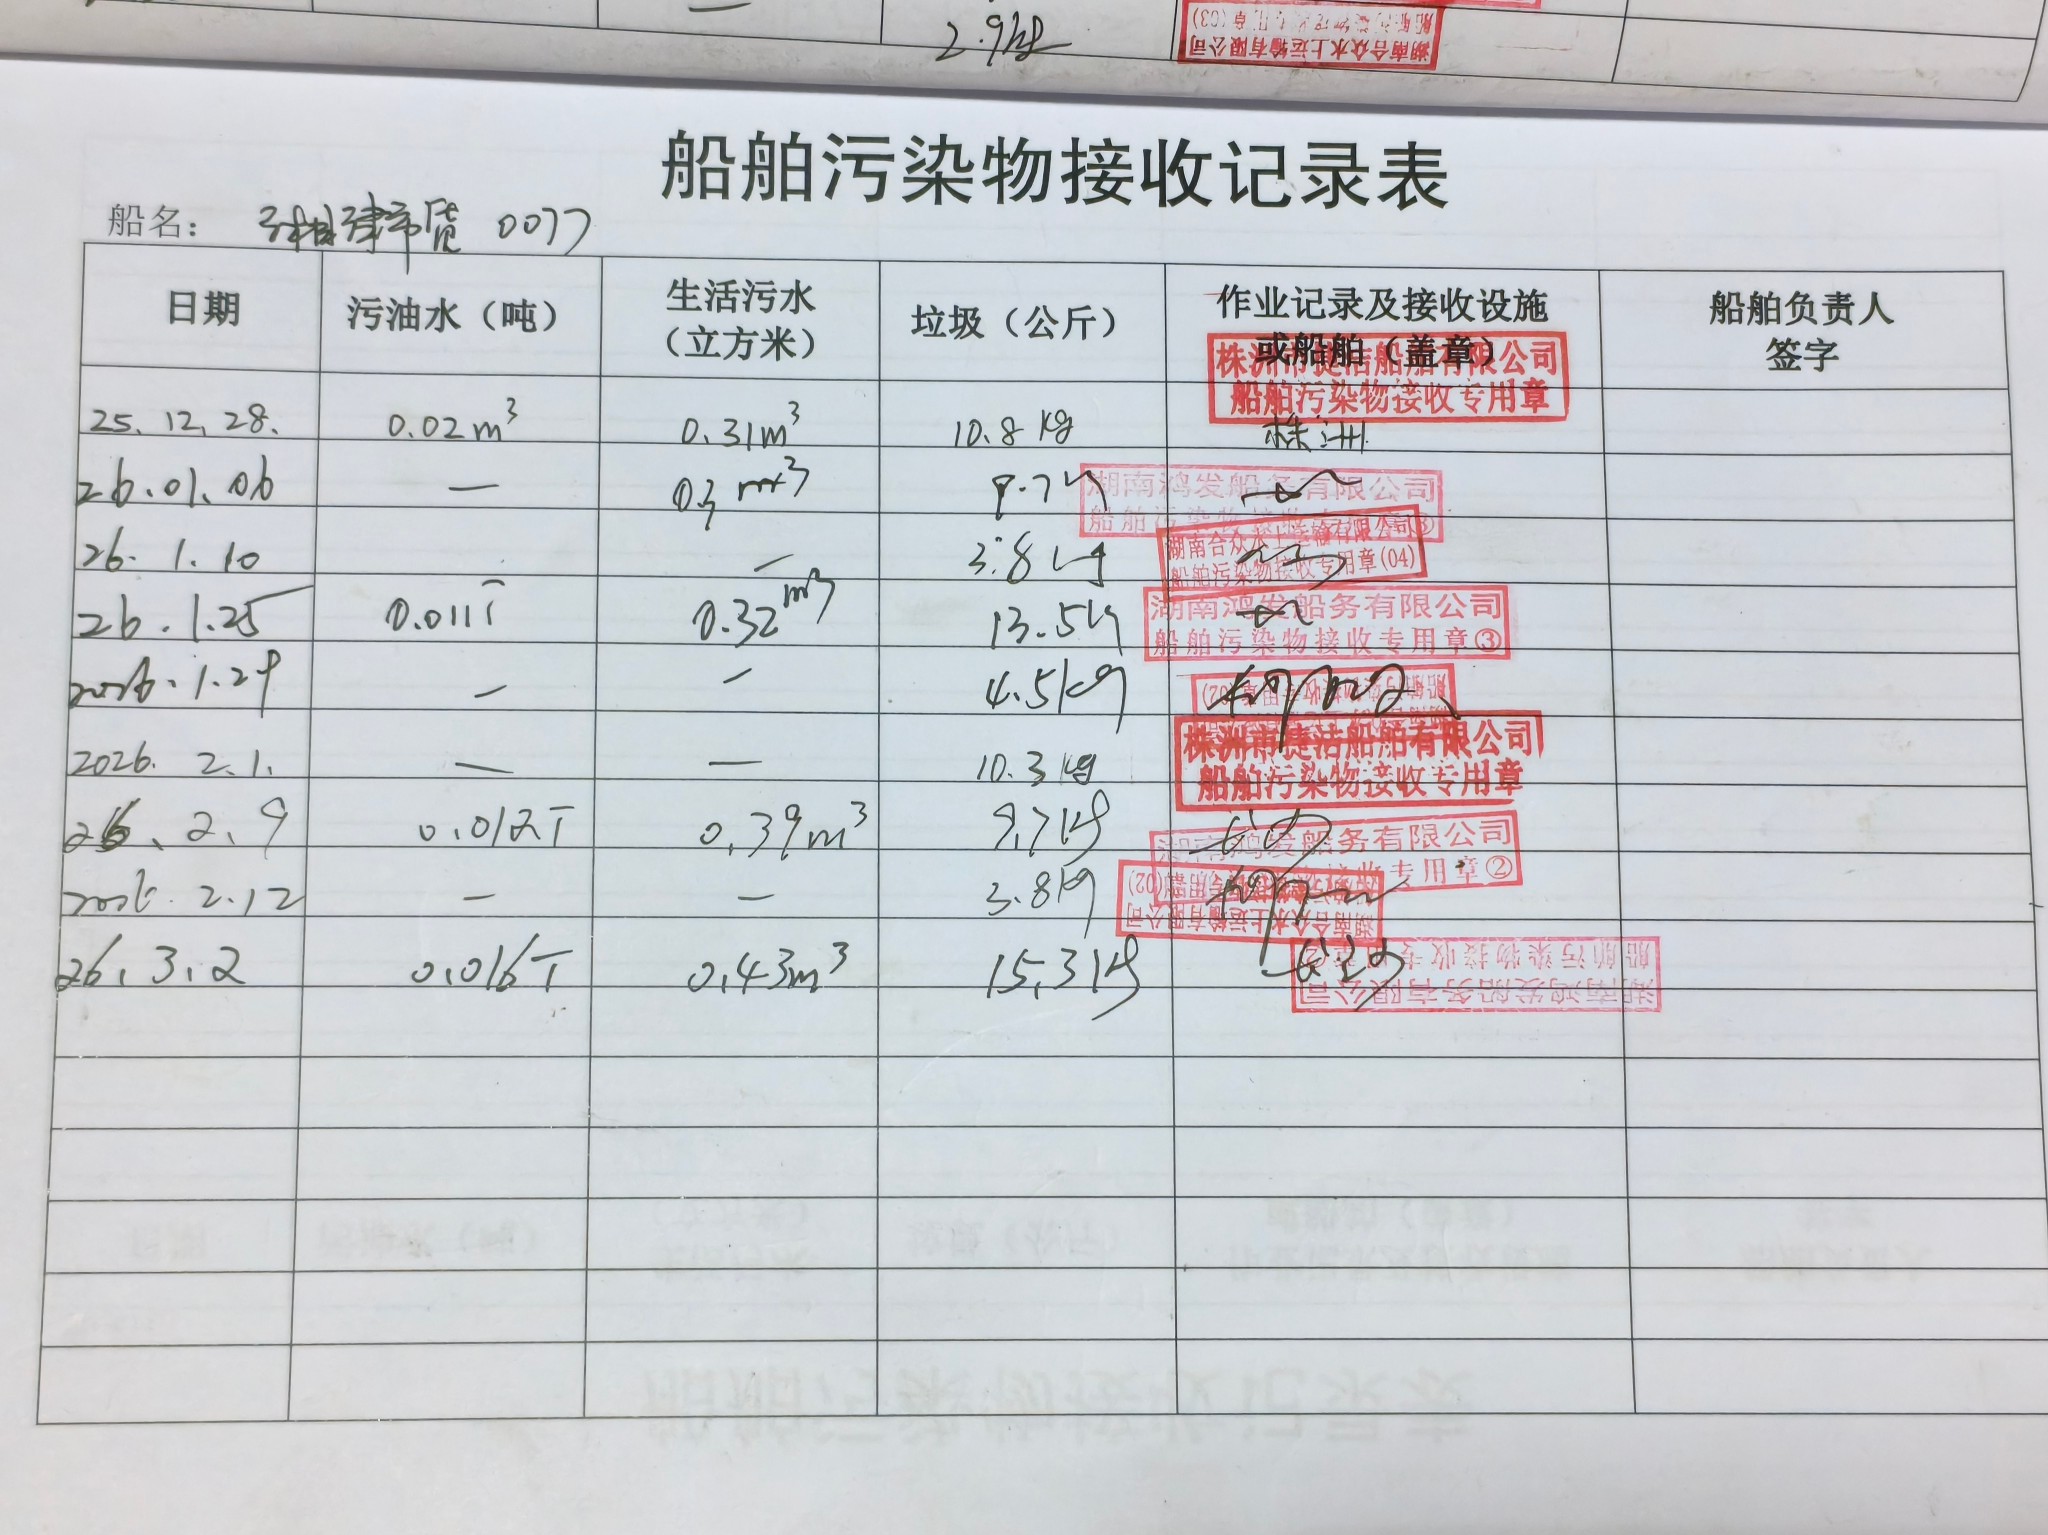 2.9kg
湖南合众水上运输有限公司
船舶污染物接收记录表
船名： 湘津市货 0077
日期 污油水（吨） 生活污水（立方米） 垃圾（公斤） 作业记录及接收设施或船舶（盖章） 船舶负责人签字
株洲市捷洁船舶有限公司
船舶污染物接收专用章
25.12.28. 0.02m³ 0.31m³ 10.8kg 株洲
26.01.06 — 0.3m³
湖南鸿发船务有限公司
船舶污染物接收专用章③
26.1.10 — 3.8kg
湖南合众水上运输有限公司
船舶污染物接收专用章(04)
26.1.25 0.011T 0.32m³ 13.5kg
湖南鸿发船务有限公司
船舶污染物接收专用章③
2026.1.29 — — 4.5kg
船舶污染物接收专用章(02)
2026.2.1. — — 10.3kg
株洲市捷洁船舶有限公司
船舶污染物接收专用章
26.2.9 0.012T 0.39m³ 9.7kg
湖南鸿发船务有限公司
船舶污染物接收专用章②
2026.2.12 — — 3.8kg
船舶污染物接收专用章(02)
湖南合众水上运输有限公司
26.3.2 0.016T 0.43m³ 15.3kg
船舶污染物接收专用章②
湖南鸿发船务有限公司